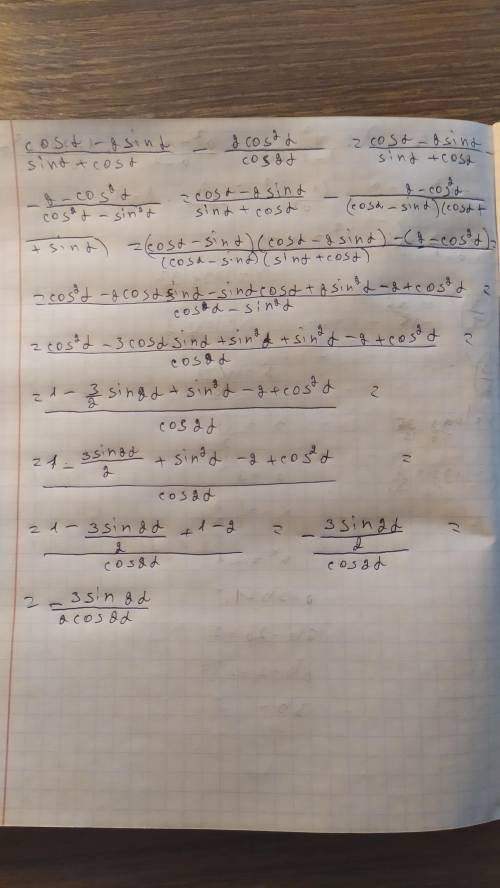 (cos α - 2 sin α)/(sin α + cos α) - (2 cos²α)/(cos 2α) = (cos α - 2 sin α)/(sin α + cos α) -
- (2 - cos²α)/(cos²α - sin²α) = (cos α - 2 sin α)/(sin α + cos α) - (2 - cos²α)/((cos α - sin α)(cos α +
+ sin α)) = ((cos α - sin α)(cos α - 2 sin α) - (2 - cos²α))/((cos α - sin α)(sin α + cos α)) =
= (cos²α - 2 cos α sin α - sin α cos α + 2 sin²α - 2 + cos²α)/(cos²α - sin²α) =
= (cos²α - 3 cos α sin α + sin²α + sin²α - 2 + cos²α)/(cos 2α) =
= (1 - 3/2 sin 2α + sin²α - 2 + cos²α)/(cos 2α) =
= (1 - (3 sin 2α)/2 + sin²α - 2 + cos²α)/(cos 2α) =
= (1 - (3 sin 2α)/2 + 1 - 2)/(cos 2α) = (- (3 sin 2α)/2)/(cos 2α) =
= - (3 sin 2α)/(2 cos 2α)